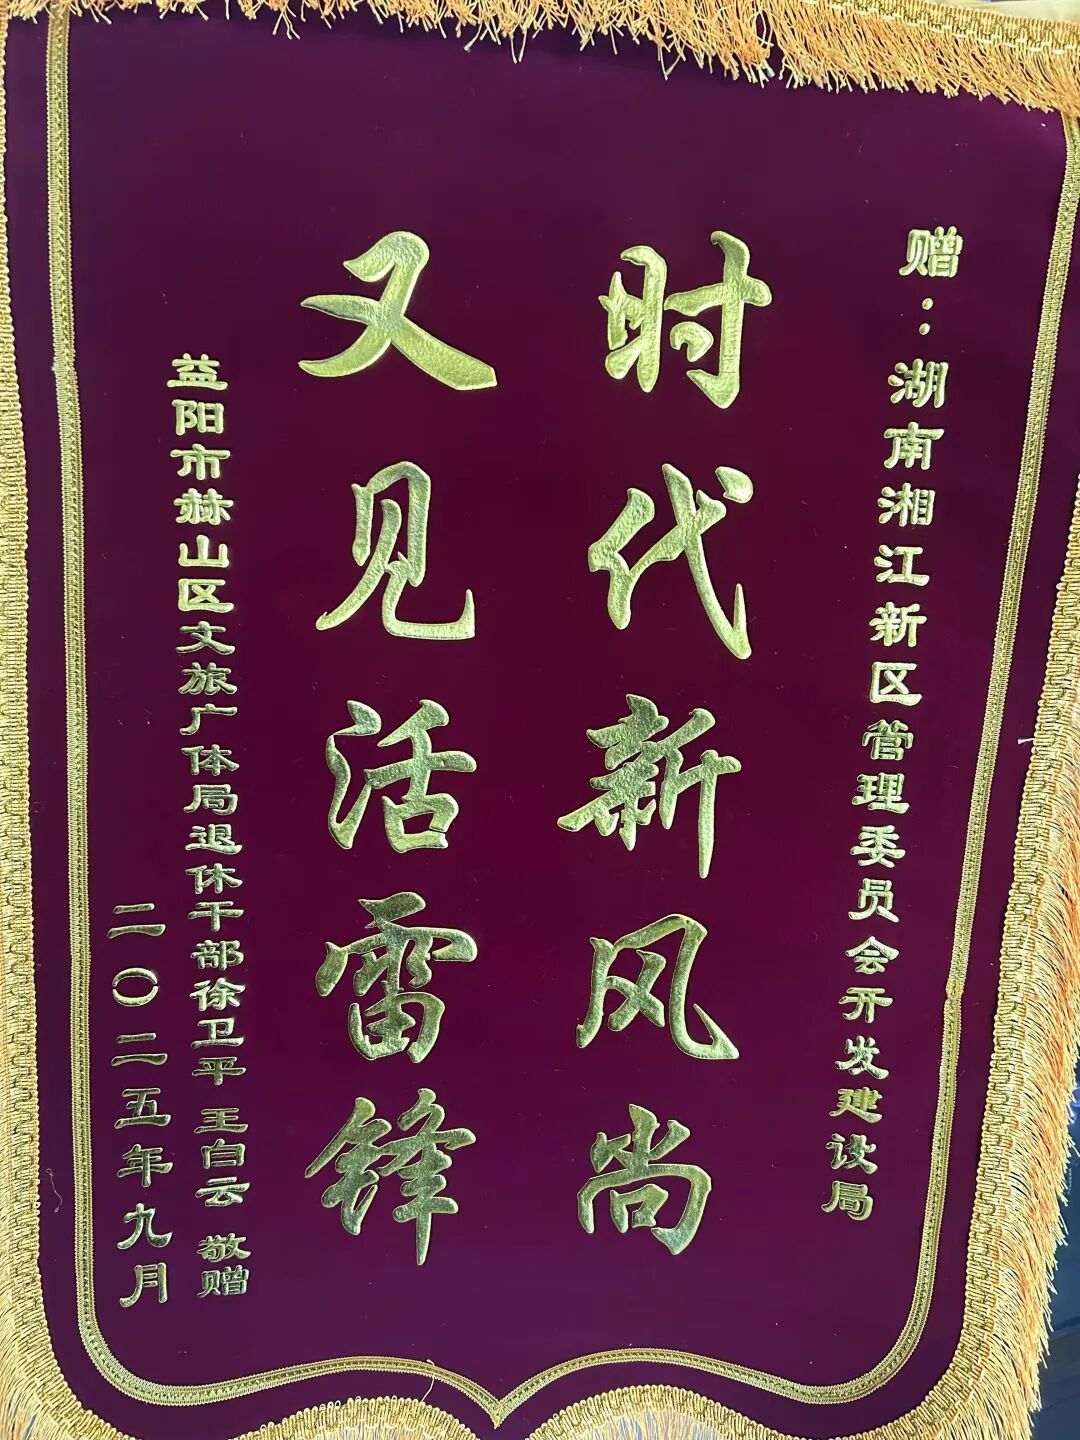 赠：湖南湘江新区管理委员会开发建设局
时代新风尚
又见活雷锋
益阳市赫山区文旅广体局退休干部徐卫平 王白云 敬赠
二〇二五年九月